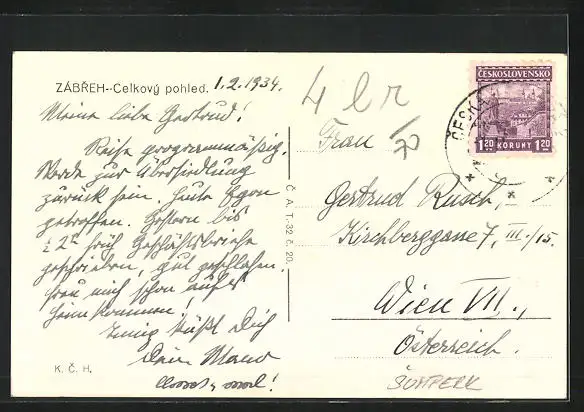 ZÁBŘEH.-Celkový pohled. 1.2.1934.
Meine liebe Gertrud!
Reise programmässig.
Werde zur Übersiedlung
zurück sein. Heute Egon
getroffen. Gestern bis
früh Geschäftsbriefe
geschrieben, gut geschlafen.
Freu mich schon aufs
Heimkommen!
Innig küßt Dich
Dein
K. Č. H.
Č. A. T.-32 č. 20.
4 l r
70
ČESKOSLOVENSKO
1.20 KORUNY 1.20
ČESKÁ
Frau
Gertrud Rusch,
Kirchberggasse 7, III./15.
Wien VII.,
Österreich.
ŠUMPERK